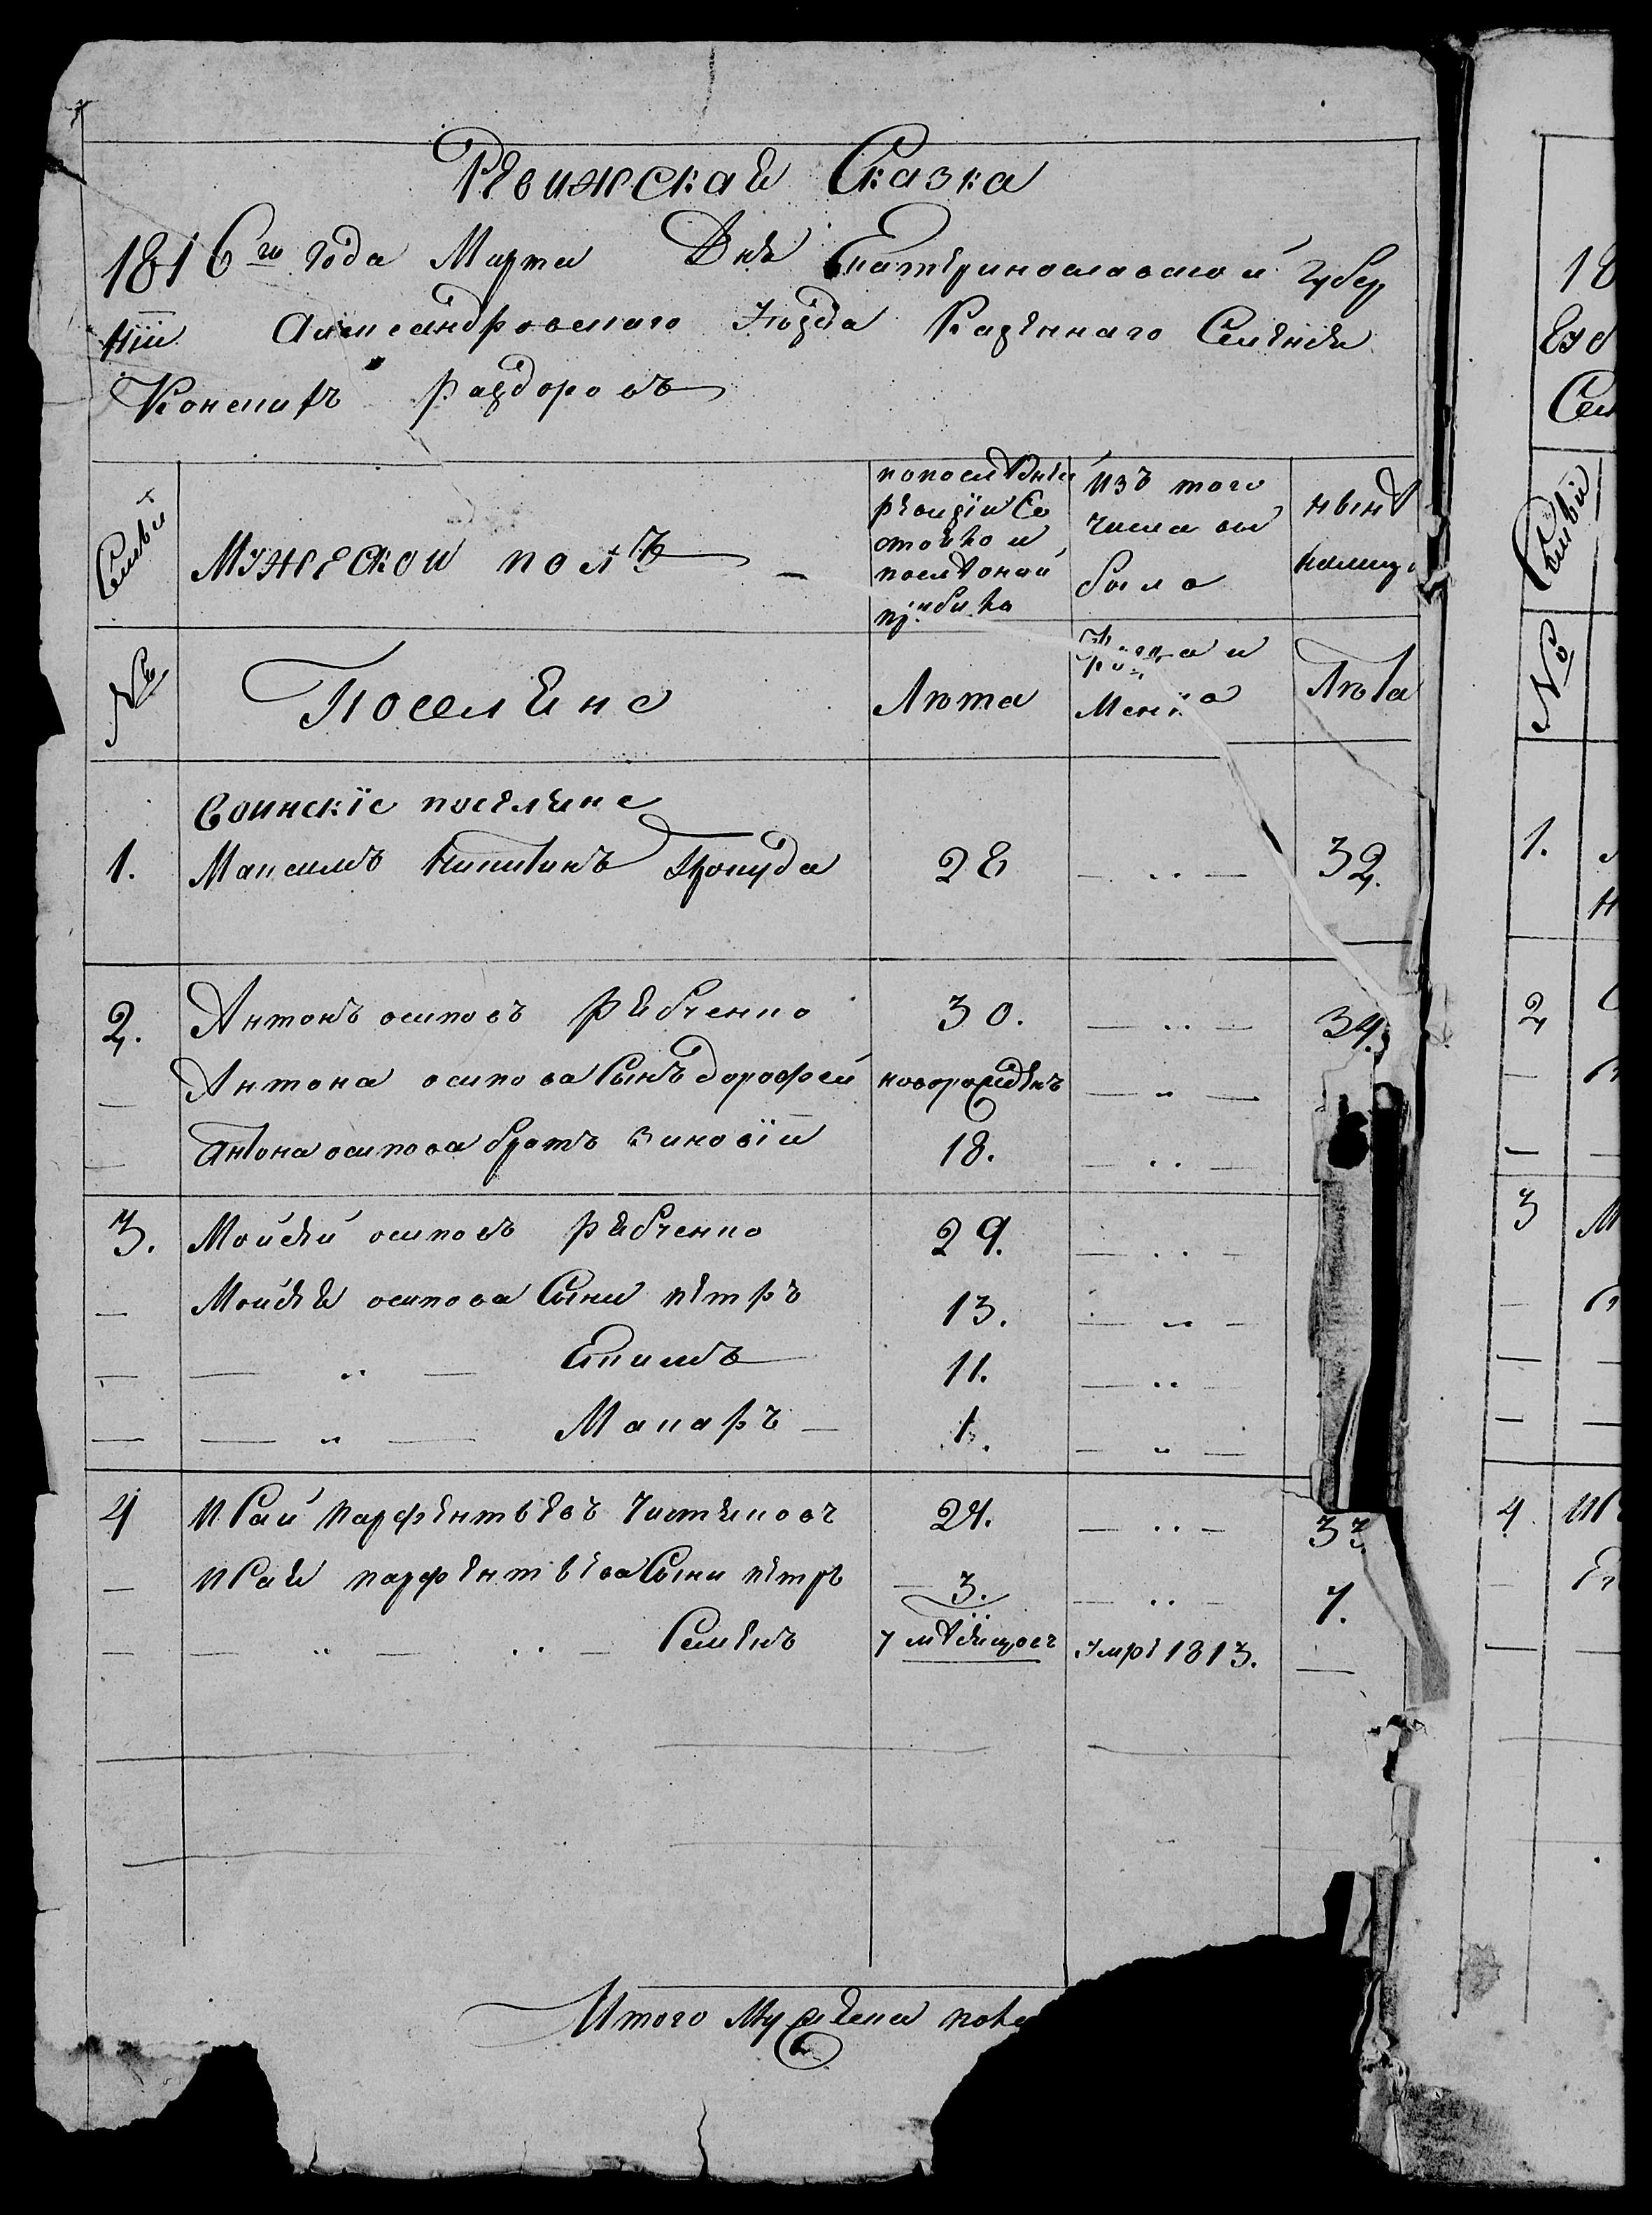 Ревижская Сказка
1816го года Марта Дня Екатеринославской губер
нїи Александровскаго уѣзда Казеннаго Селенея
Конскихъ раздоровъ
Семьи
Мужеской полъ
попоследней ревизїи Со
стояло и
после оной
прибыло
Изъ того
числа вы
было
нынѣ
налицо
№
Поселяне
Лѣта
Когда и
Лѣта
воинскїе поселяне
1. Максимъ Никитинъ 28 — „ — 32.
2. Антонъ осиповъ рябченко 30. — „ — 34.
— Антона осипова Сынъ дорофей новорожденъ — „ —
— Антона осипова братъ зиновїй 18. — „ —
3. Мойсей осиповъ рябченко 29. — „ —
— Мойсея осипова Сыни петръ 13. — „ —
— — „ — Екимъ 11. — „ —
— — „ — Макаръ — 1. — „ —
4 ИСай парфентьевъ Чистяковъ 29. — „ — 33.
— ИСая парфентьева Сыни петръ — 3. — „ — 7.
— — „ — „ — Семенъ 7 месяцовъ умре 1813. —
Итого Мужеска
18
Семьи
№
1.
2
3
4